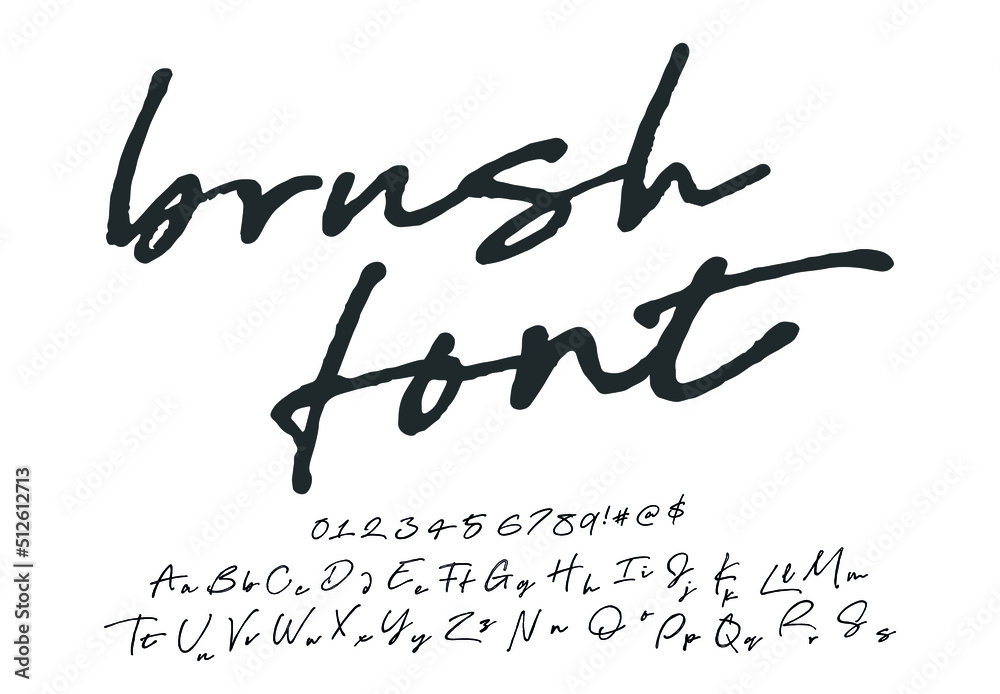 brush
font
0123456789!#@$
Aa Bb Cc Dd Ee Ff Gg Hh Ii Jj Kk Ll Mm
Tt Uu Vv Ww Xx Yy Zz Nn Oo Pp Qq Rr Ss
Adobe Stock | #512612713